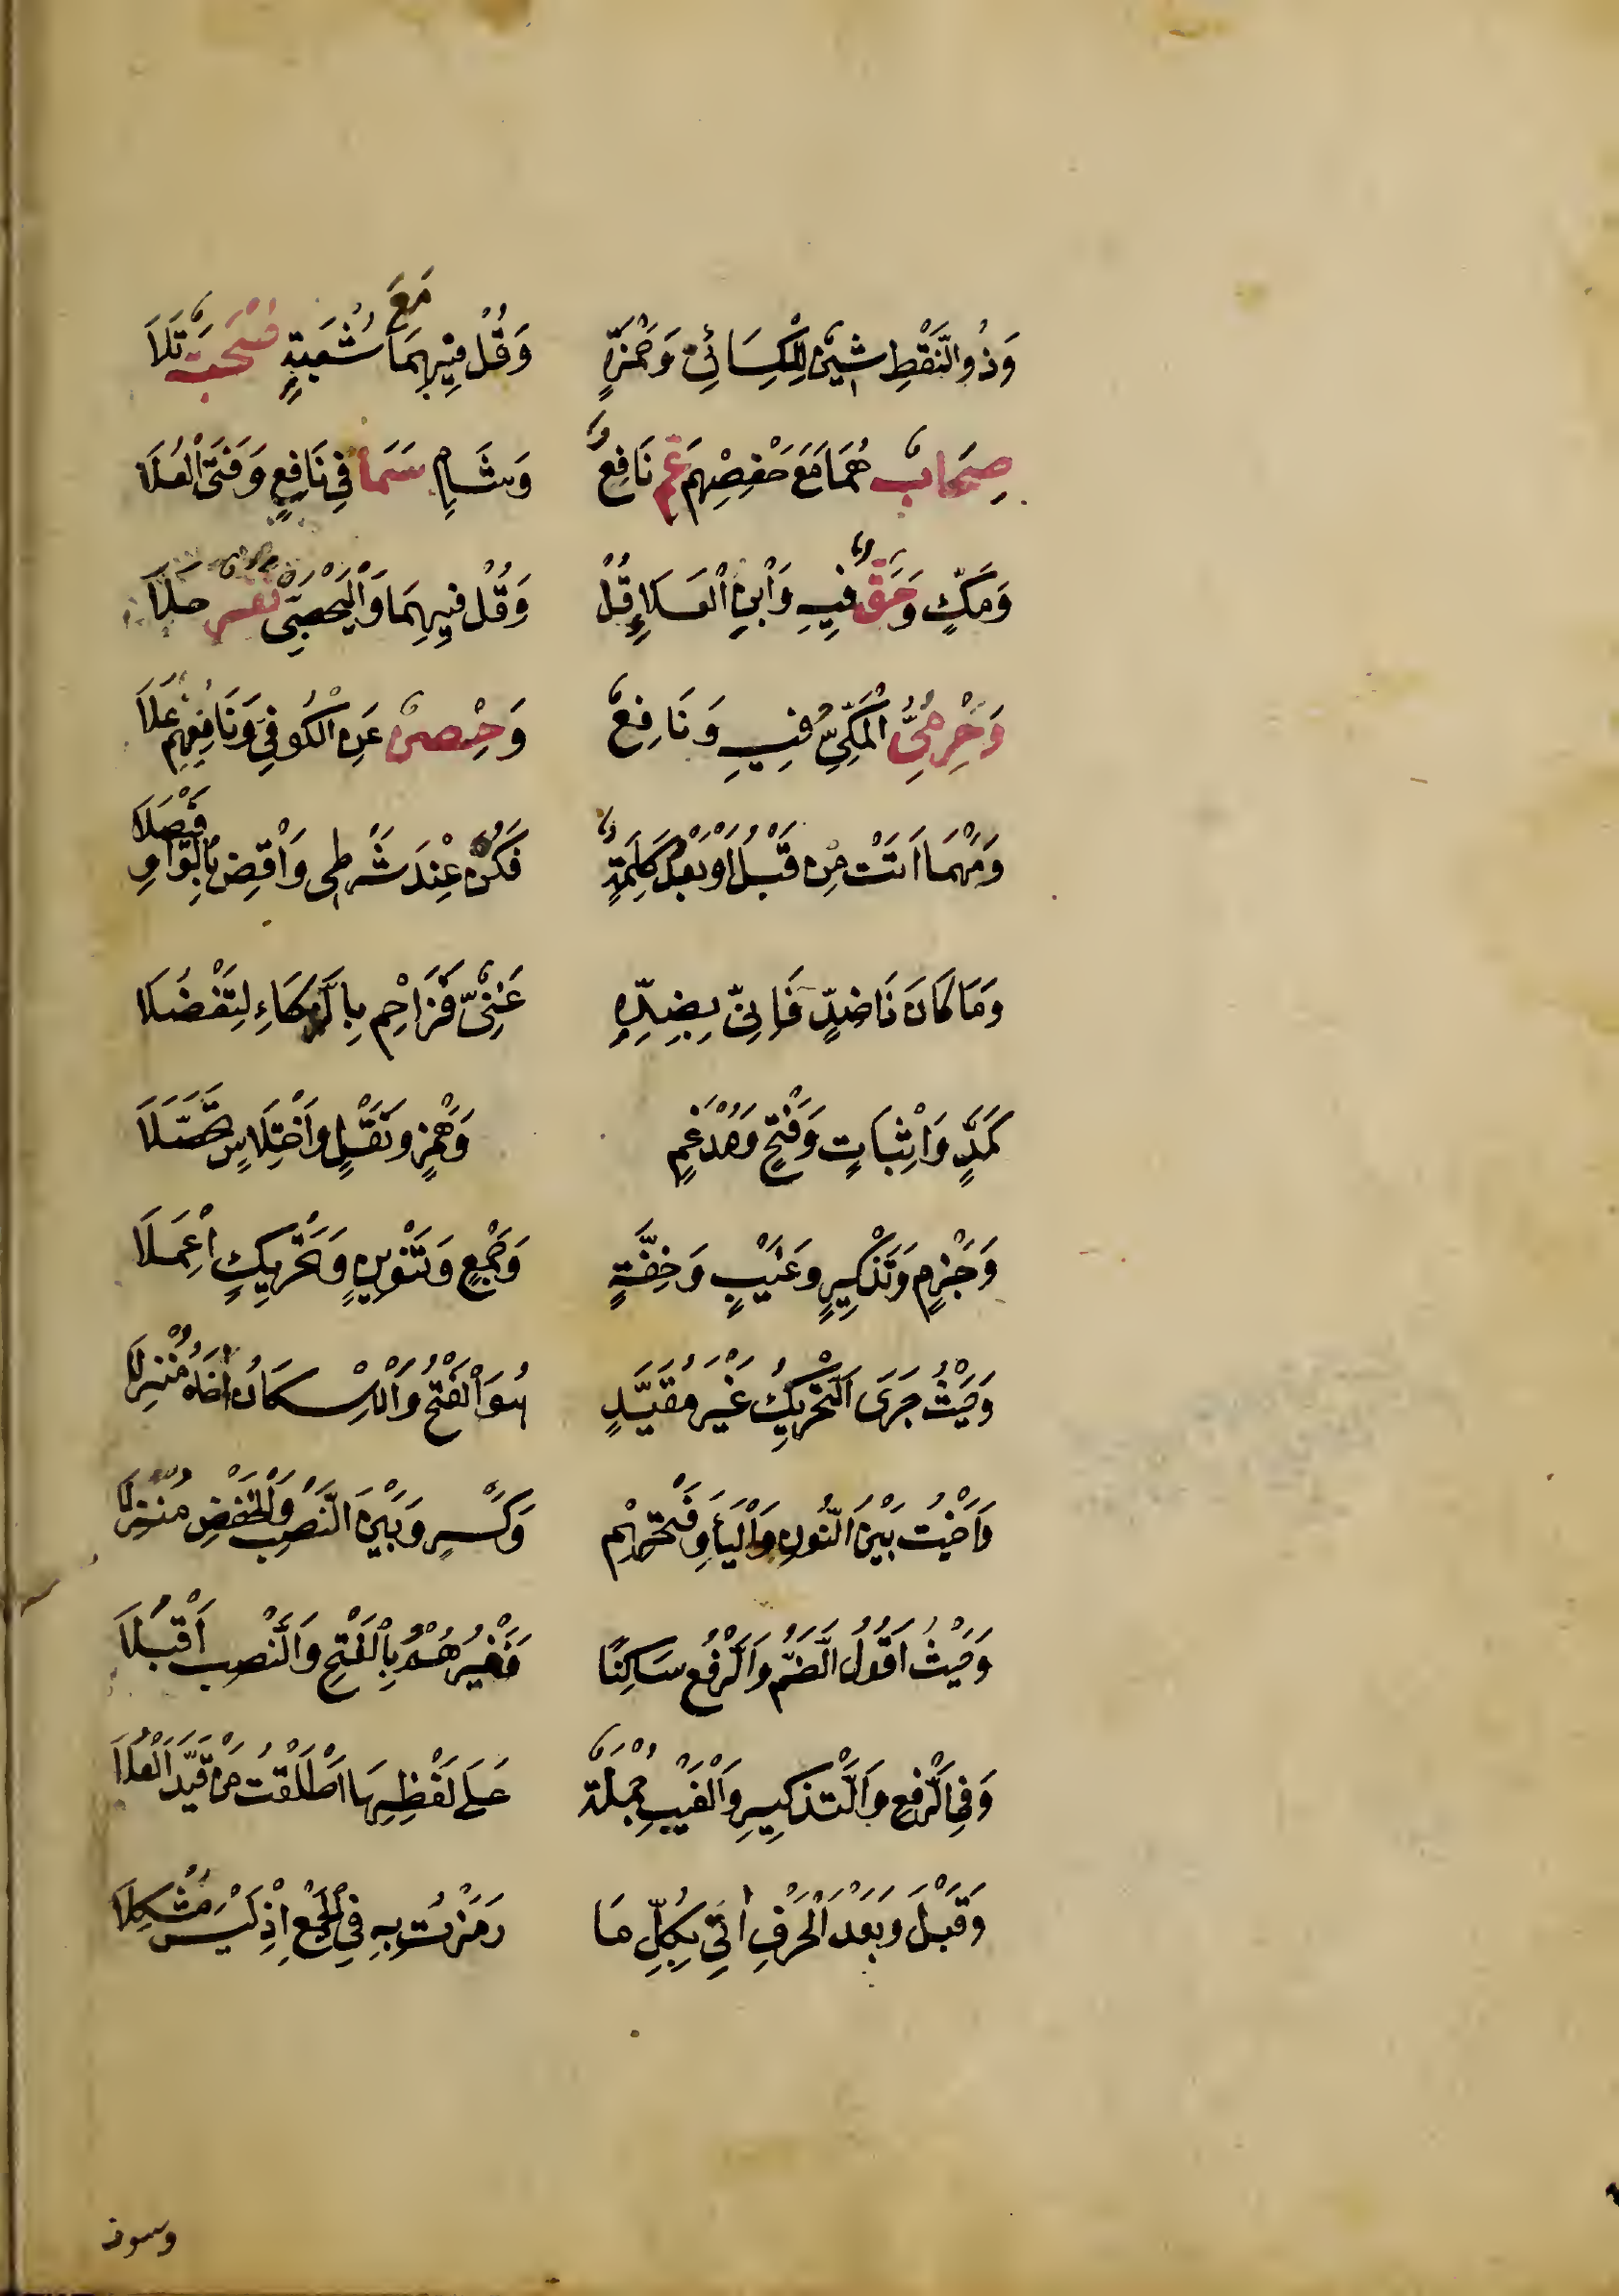 وَذُو النَّقْطِ شِينٌ لِلْكِسَائِي وَحَمْزَةٍ وَقُلْ فِيهِمَا مَعَ شُعْبَةٍ صُحْبَةٌ تَلَا
صِحَابٌ هُمَا مَعَ حَفْصِهِمْ عَمَّ نَافِعٌ وَشَامٍ سَمَا فِي نَافِعٍ وَفَتَى الْعَلَا
وَمَكٍّ وَحَقٌّ فِيهِ وَابْنِ الْعَلَاءِ قُلْ وَقُلْ فِيهِمَا وَالْيَحْصَبِي نَفَرٌ حَلَا
وَحِرْمِيٌّ الْمَكِّيُّ فِيهِ وَنَافِعٌ وَحِصْنٌ عَنِ الْكُوفِي وَنَافِعِهِمْ عَلَا
وَمَهْمَا اَتَتْ مِنْ قَبْلُ اَوْ بَعْدُ كِلْمَةٌ فَكُنْ عِنْدَ شَرْطِي وَاقْضِ بِالْوَاوِ فَيْصَلَا
وَمَا كَانَ ذَا ضِدٍّ فَاِنِّي بِضِدِّهِ غَنِيٌّ فَزَاحِمْ بِالذَّكَاءِ لِتَفْضُلَا
كَمَدٍّ وَاِثْبَاتٍ وَفَتْحٍ وَمُدْغَمٍ وَهَمْزٍ وَنَقْلٍ وَاخْتِلَاسٍ تَحَصَّلَا
وَجَزْمٍ وَتَذْكِيرٍ وَغَيْبٍ وَخِفَّةٍ وَجَمْعٍ وَتَنْوِينٍ وَتَحْرِيكٍ اُعْمِلَا
وَحَيْثُ جَرَى التَّحْرِيكُ غَيْرَ مُقَيَّدٍ هُوَ الْفَتْحُ وَالْاِسْكَانُ اٰخَاهُ مُنْزِلَا
وَاٰخَيْتُ بَيْنَ النُّونِ وَالْيَا وَفَتْحِهِمْ وَكَسْرٍ وَبَيْنَ النَّصْبِ وَالْخَفْضِ مُنْزِلَا
وَحَيْثُ اَقُولُ الضَّمُّ وَالرَّفْعُ سَاكِتًا فَغَيْرُهُمُ بِالْفَتْحِ وَالنَّصْبِ اَقْبَلَا
وَفِي الرَّفْعِ وَالتَّذْكِيرِ وَالْغَيْبِ جُمْلَةٌ عَلَى لَفْظِهَا اَطْلَقْتُ مَنْ قَيَّدَ الْعُلَا
وَقَبْلَ وَبَعْدَ الْحَرْفِ اٰتِي بِكُلِّ مَا رَمَزْتُ بِهِ فِي الْجَمْعِ اِذْ لَيْسَ مُشْكِلَا
وسوف